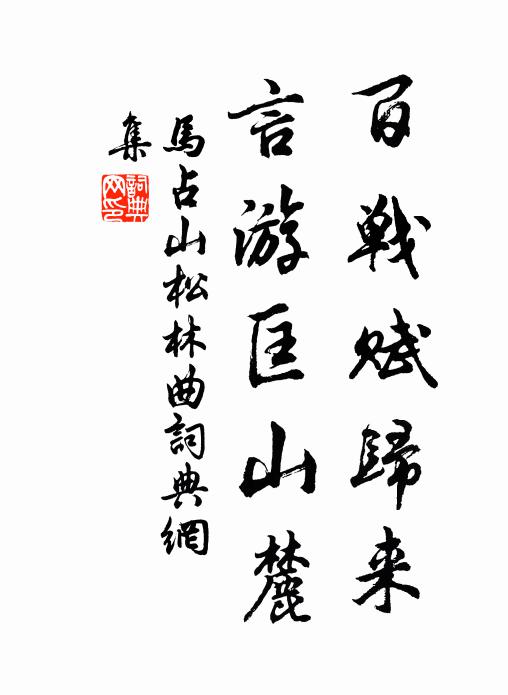 百戦赋歸来
言游匡山麓
馬占山松林曲詞典網
集
詞典
网印